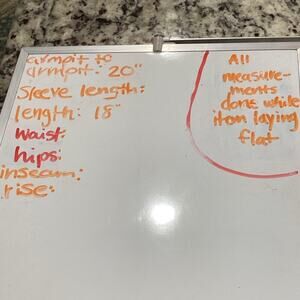 armpit to
armpit: 20"
Sleeve length:
length: 18"
Waist:
hips:
inseam:
rise:
All
measure-
ments
done while
item laying
flat